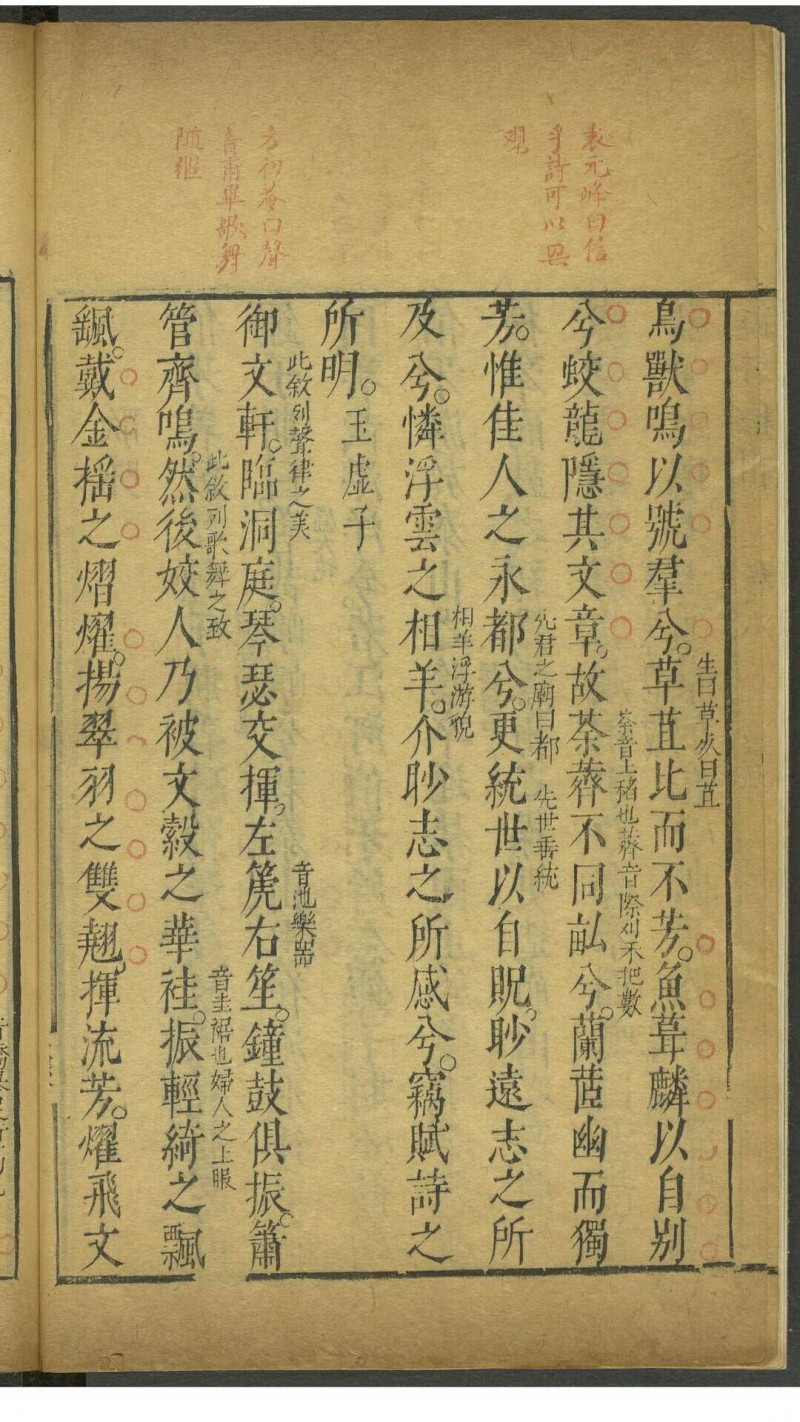 袁元峰曰信
乎詩可以興
觀
方初菴曰聲
音甫畢歌舞
隨繼
鳥獸鳴以號羣兮。草苴比而不芳。魚葺鱗以自别
生曰草火曰苴
兮蛟龍隱其文章。故荼薺不同畝兮。蘭茝幽而獨
荼音上稌也薺音際刈禾把數
芳。惟佳人之永都兮。更統世以自貺。眇遠志之所
先君之廟曰都 先世垂統
及兮。憐浮雲之相羊。介眇志之所感兮。竊賦詩之
相羊浮游貌
所明。玉虛子
此敘列聲律之美
御文軒。臨洞庭。琴瑟交揮。左篪右笙。鐘鼓俱振。簫
音池樂器
此敘列歌舞之致
管齊鳴。然後姣人乃被文縠之華袿。振輕綺之飄
音圭裾也婦人之上服
颻。戴金搖之熠燿。揚翠羽之雙翹。揮流芳。燿飛文